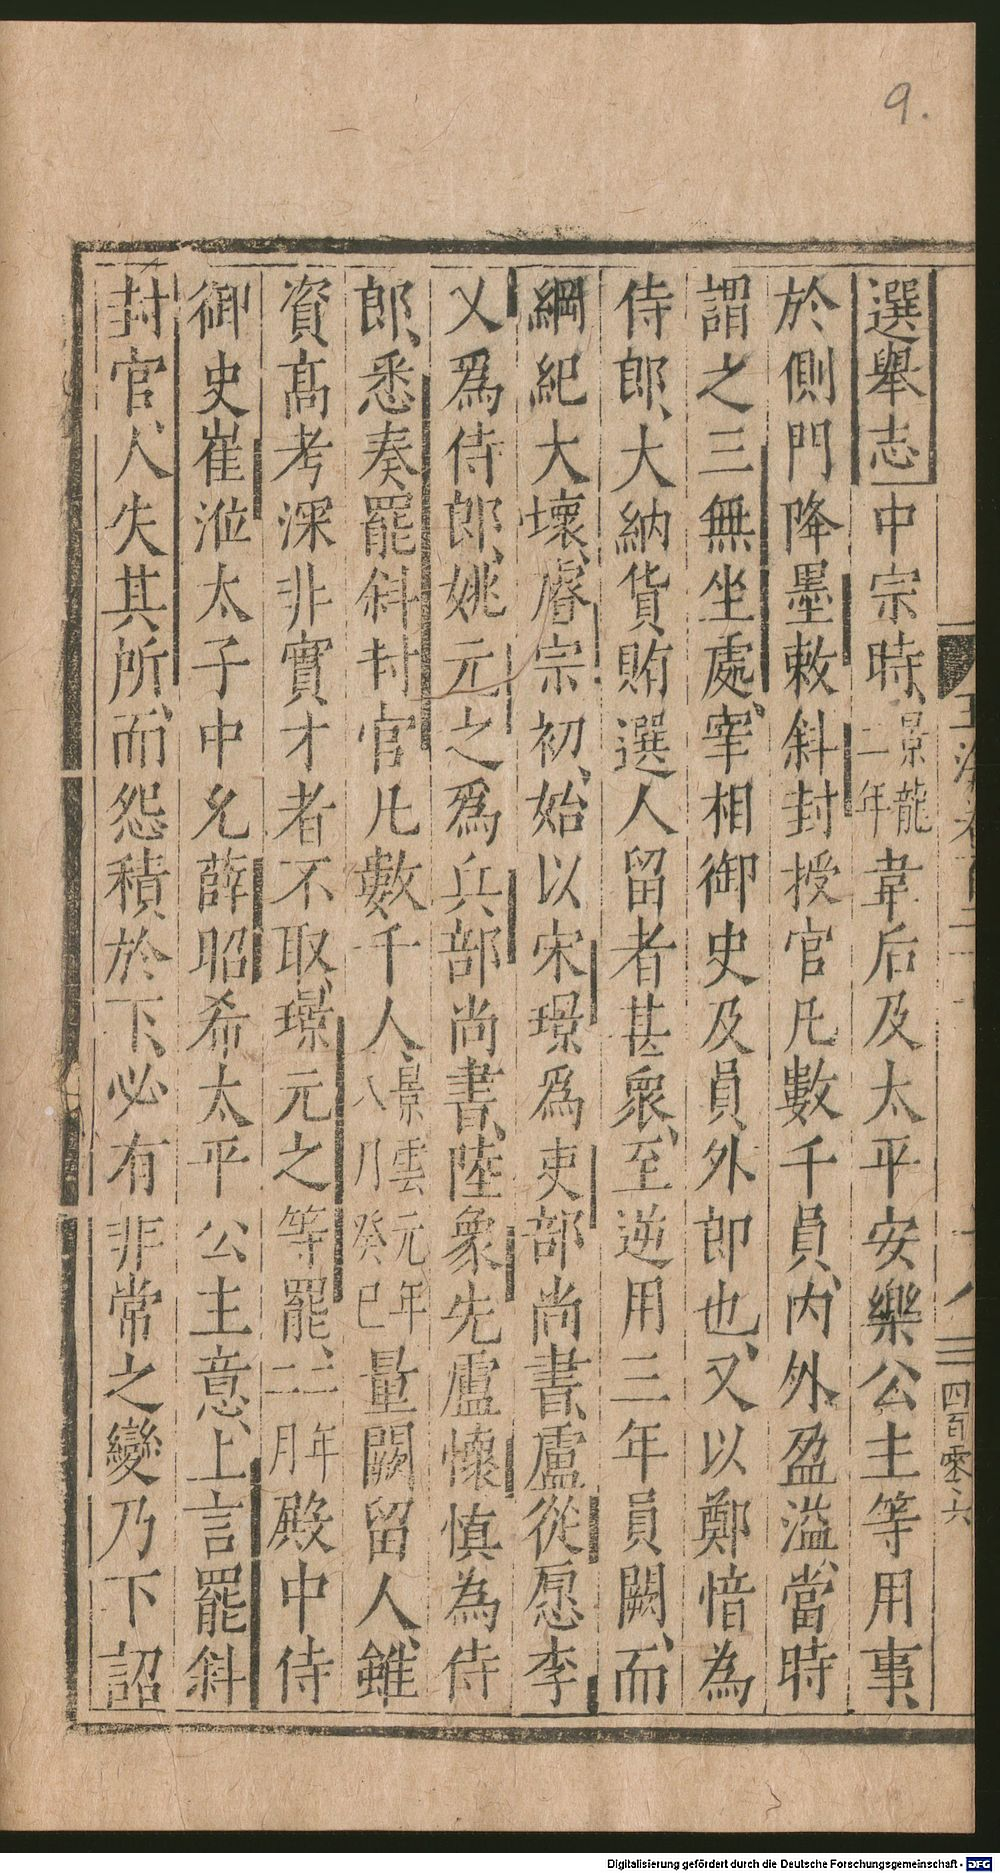 9.
選舉志中宗時景龍二年韋后及太平安樂公主等用事
於側門降墨敕斜封授官凡數千員內外盈溢當時
謂之三無坐處宰相御史及員外郎也又以鄭愔為
侍郎大納貨賄選人留者甚衆至逆用三年員闕而
綱紀大壞睿宗初始以宋璟爲吏部尚書盧從愿李
乂爲侍郎姚元之爲兵部尚書陸象先盧懷慎為侍
郎悉奏罷斜封官凡數千人景雲元年八月癸巳量闕留人雖
資高考深非實才者不取璟元之等罷二年二月殿中侍
御史崔涖太子中允薛昭希太平公主意上言罷斜
封官人失其所而怨積於下必有非常之變乃下詔
四百零六
Digitalisierung gefördert durch die Deutsche Forschungsgemeinschaft - DFG